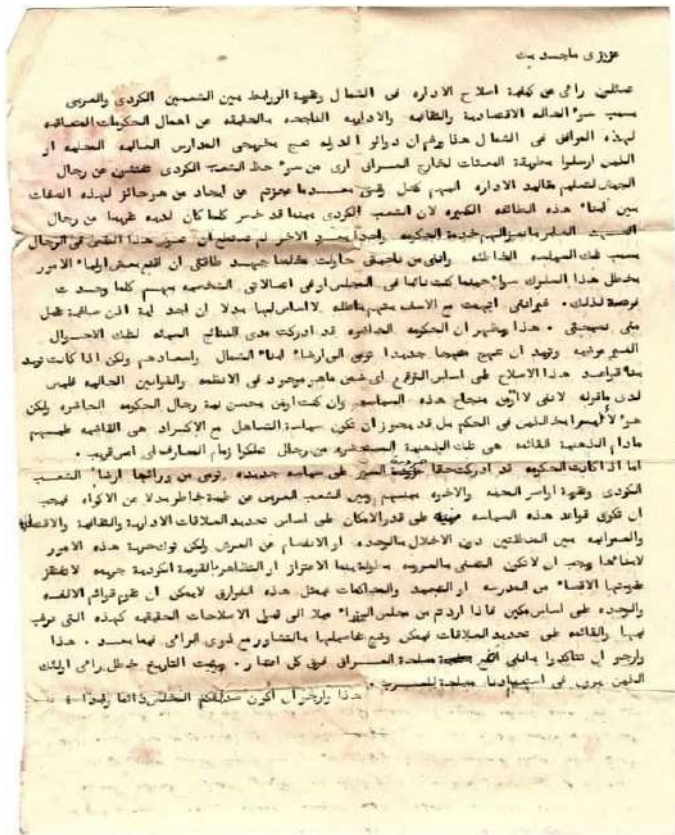 عزيزي ماجد بيك
تسئلون رأي عن كيفية اصلاح الاداره في الشمال وتقوية الروابط بين الشعبين الكردي والعربي
بسبب سوء الحاله الاقتصادية والثقافيه والاداريه الناتجه بالحقيقه عن اهمال الحكومات المتعاقبه
لهذه المرافق في الشمال هذا برغم ان دوائر الدوله تعج بخريجي المدارس العاليه المحليه او
الذين ارسلوا بطريقة البعثات لخارج العراق ارى من سوء حظ الشعب الكردي تفتشون عن رجال
الجيش لتسليم مقاليد الاداره اليهم عندما عجزتم عن ايجاد من هو حائز لهذه الصفات
بين ابناء هذه الطائفه الكبيره لان الشعب الكردي بينما قد خسر كلما كان لديه تقريبا من رجال
خدمة الحكومه واحدا بعد الاخر لم تستطع ان تعوض هذا النقص في الرجال
بسبب تلك السياسه الخاطئه وانني من ناحيتي حاولت مخلصا جهد طاقتي ان اقنع بعض اولياء الامور
بخطل هذا السلوك سواء حينما كنت نائبا في المجلس او في اتصالاتي الشخصيه بهم كلما وجدت
فرصة لذلك . غير انني اتهمت مع الاسف بتهم باطله لا اساس لها بدلا ان اجد اية اذن صاغية تقبل
مني نصيحتي . هذا ويظهر ان الحكومه الحاضره قد ادركت مدى النتائج السيئه لتلك الاحوال
الغير مرضيه وتريد ان تنهج منهجا جديدا ترمي الى ارضاء ابناء الشمال واسعادهم ولكن اذا كانت تريد
بناء قواعد هذا الاصلاح على اساس الترقيع اي ضمن ماهو موجود في الانظمه والقوانين الحاليه فليس
لدي ما اقوله لانني لا اؤمن بنجاح هذه السياسه وان كنت اؤمن بحسن نية رجال الحكومه الحاضره ولكن
هؤلاء ليسوا بخالدين في الحكم بل قد يجوز ان تكون سياسة التساهل مع الاكراد هي القاضيه عليهم
مادام الذهنية القائده هي تلك الذهنية من رجال تملكوا زمام المعارف الى امس قريب .
اما اذا كانت الحكومه قد ادركت حقا ضرورة السير على سياسه جديده ترمي من ورائها ارضاء الشعب
الكردي وتقوية اواصر المحبه والاخوه بينهم وبين الشعب العربي عن طيبة خاطر بدلا عن الاكراه فيجب
ان تكون قواعد هذه السياسه مبنية على قدر الامكان على اساس تحديد العلاقات الادارية والثقافية والاقتصادية
والعمرانيه بين المنطقتين دون الاخلال بالوحده او الانفصام عن العرش ولكن توك حرية هذه الامور
لابنائها ويجب ان لا تكون التغني بالعروبه بطولة بينما الاعتزاز او التظاهر بالقومية الكردية جريمه لا تغتفر
عقوبتها الاقصاء من المدرسه او التبعيد والمحاكمات فبمثل هذه الفوارق لايمكن ان تقوم قوائم الالفه
والوحده على اساس مكين فاذا اردتم من مجلس الوزراء ميلا الى قبول الاصلاحات الحقيقيه كهذه التي نرغب
فيها والقائده على تحديد العلاقات فيمكن وضع تفاصيلها بالتشاور مع ذوي الرأي فيما بعد . هذا
وارجو ان تتأكدوا بانني اعتبر مصلحة العراق فوق كل اعتبار . ويثبت التاريخ خطل رأي اولئك
الذين يرون في استعبادنا مصلحة للعرب .
هذا وارجو ان اكون صديقكم المخلص دائما وابدا